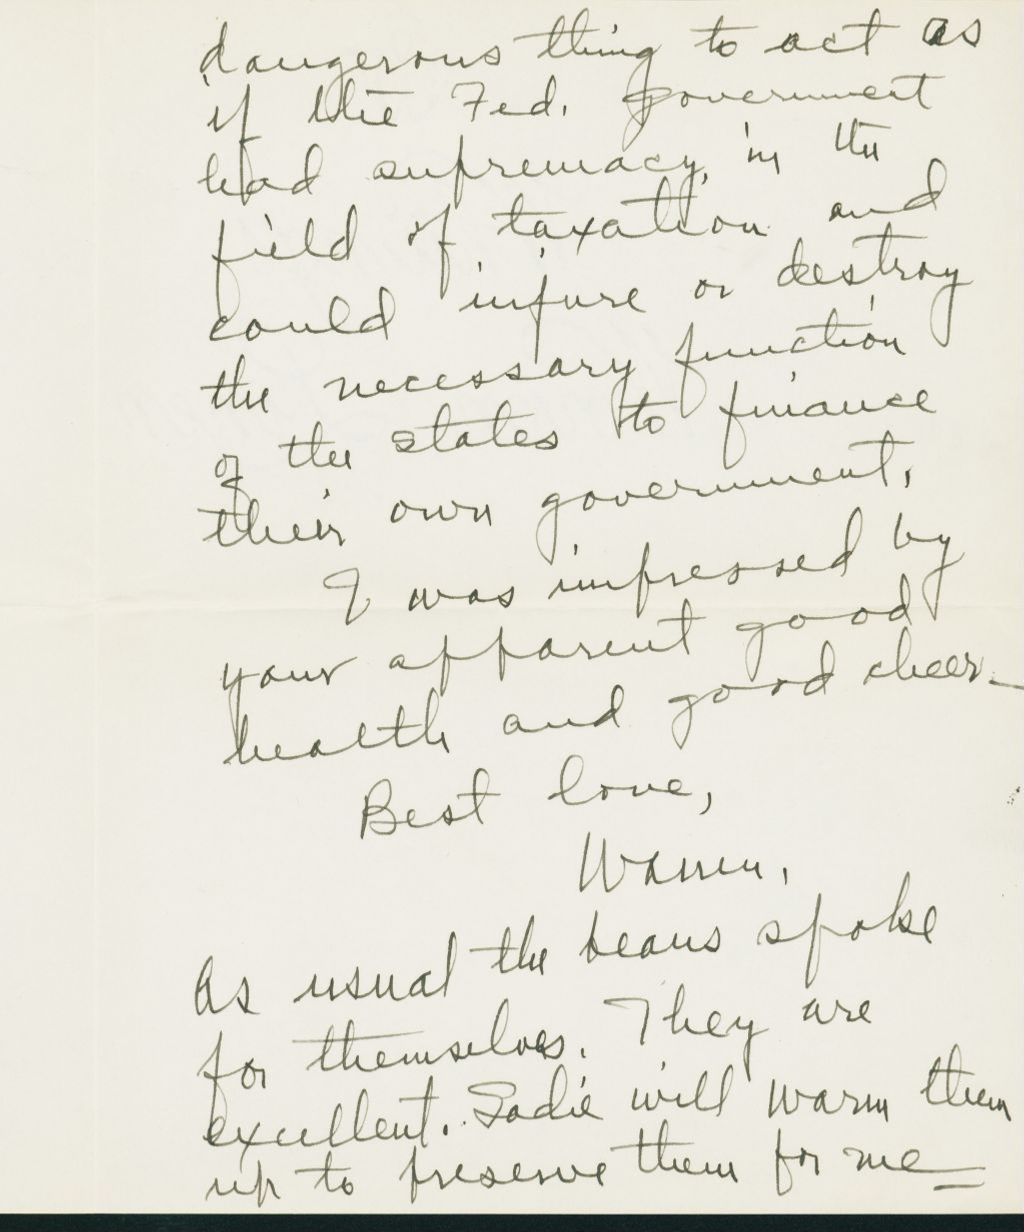 dangerous thing to act as
if the Fed. government
had supremacy, in the
field of taxation and
could injure or destroy
the necessary function
of the states to finance
their own government.
I was impressed by
your apparent good
health and good cheer_
Best love,
Warren.
As usual the beans spoke
for themselves. They are
excellent. Sadie will warm them
up to preserve them for me_